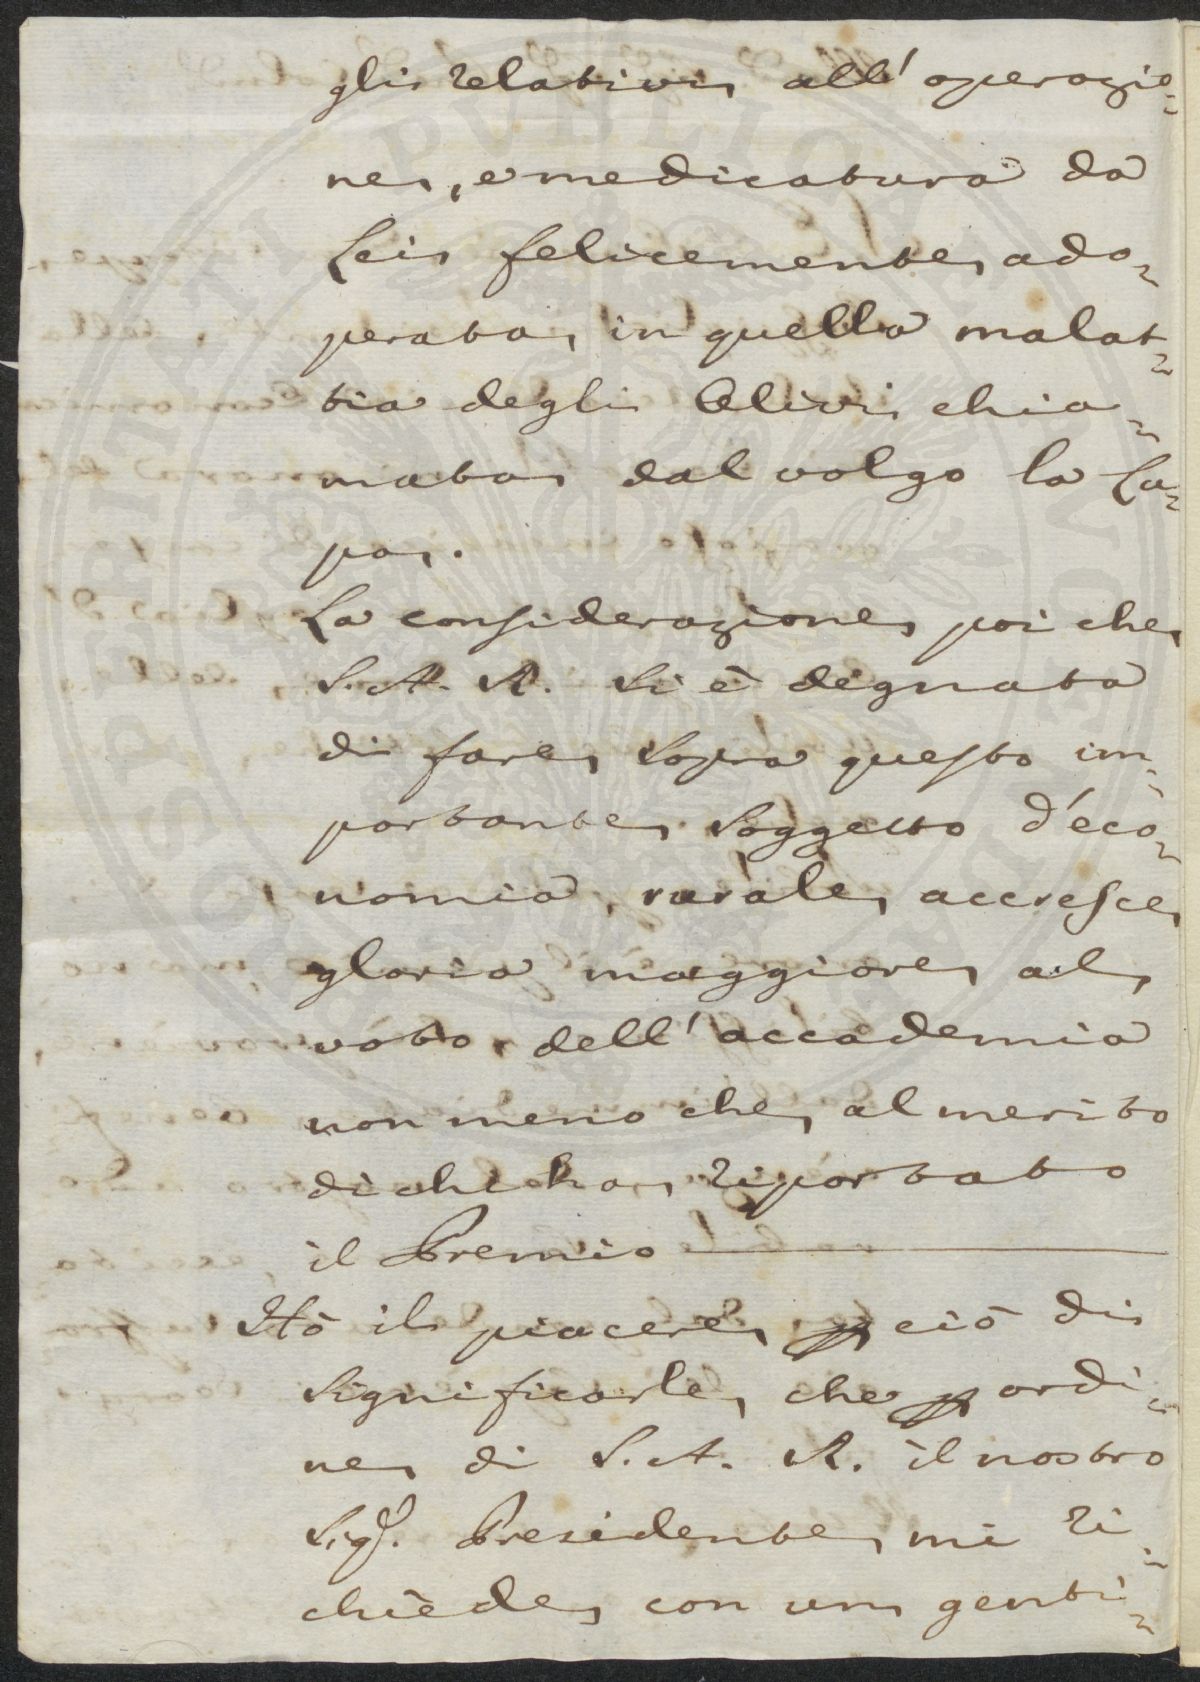 gli relativi all' operazio-
ne, e medicatura da
Lei felicemente ado-
perata in quella malat-
tia degli Olivi chia-
mata dal volgo la Lu-
pa.
La considerazione poi che
S. A. R. si è degnata
di fare sopra questo im-
portante soggetto d'eco-
nomia rurale, accresce
gloria maggiore al
voto dell'accademia
non meno che al merito
di chi ha riportato
il Premio
Hò il piacere p ciò di
significarle, che p ordi-
ne di S. A. R. il nostro
Sigr. Presidente mi ri-
chiède con un genti-